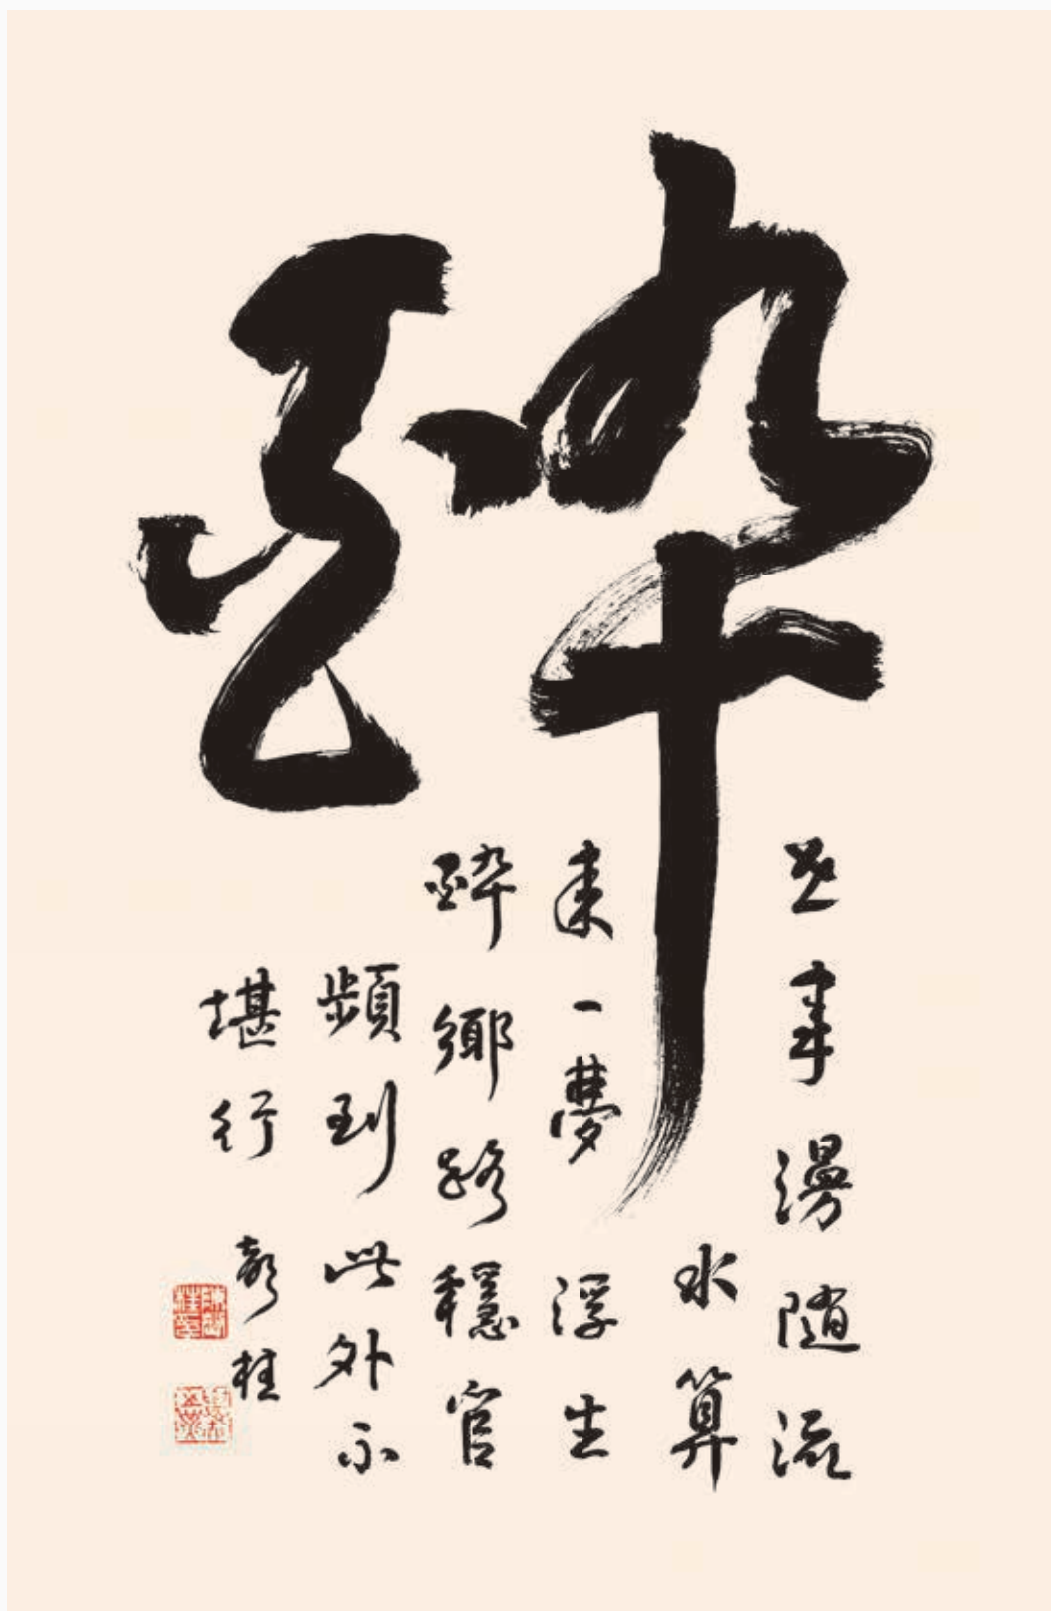 酔
世事漫随流
水算
来一夢浮生
酔鄉路穩宜
頻到此外不
堪行
桂